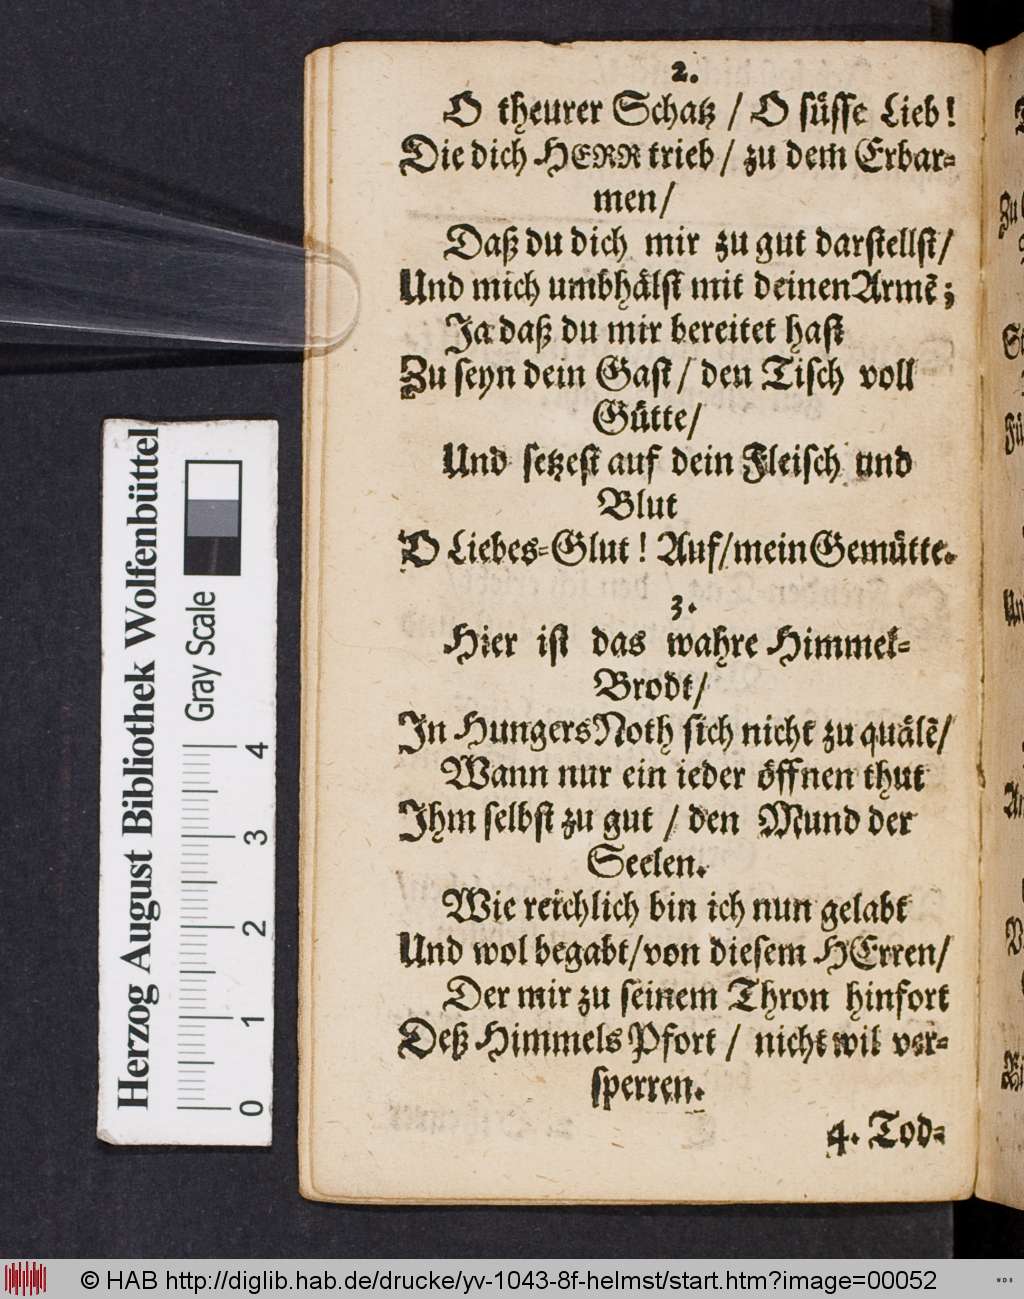 2.
O theurer Schatz / O süsse Lieb!
Die dich HERR trieb / zu dem Erbar-
men /
Daß du dich mir zu gut darstellst /
Und mich umbhälst mit deinen Armē;
Ja daß du mir bereitet hast
Zu seyn dein Gast / den Tisch voll
Gütte /
Und setzest auf dein Fleisch und
Blut
O Liebes-Glut! Auf / mein Gemütte.
3.
Hier ist das wahre Himmel-
Brodt /
In Hungers Noth sich nicht zu quälē /
Wann nur ein ieder öffnen thut
Ihm selbst zu gut / den Mund der
Seelen.
Wie reichlich bin ich nun gelabt
Und wol begabt / von diesem HErren /
Der mir zu seinem Thron hinfort
Deß Himmels Pfort / nicht wil ver-
sperren.
4. Tod-
Herzog August Bibliothek Wolfenbüttel
Gray Scale
4
3
2
1
0
© HAB http://diglib.hab.de/drucke/yv-1043-8f-helmst/start.htm?image=00052